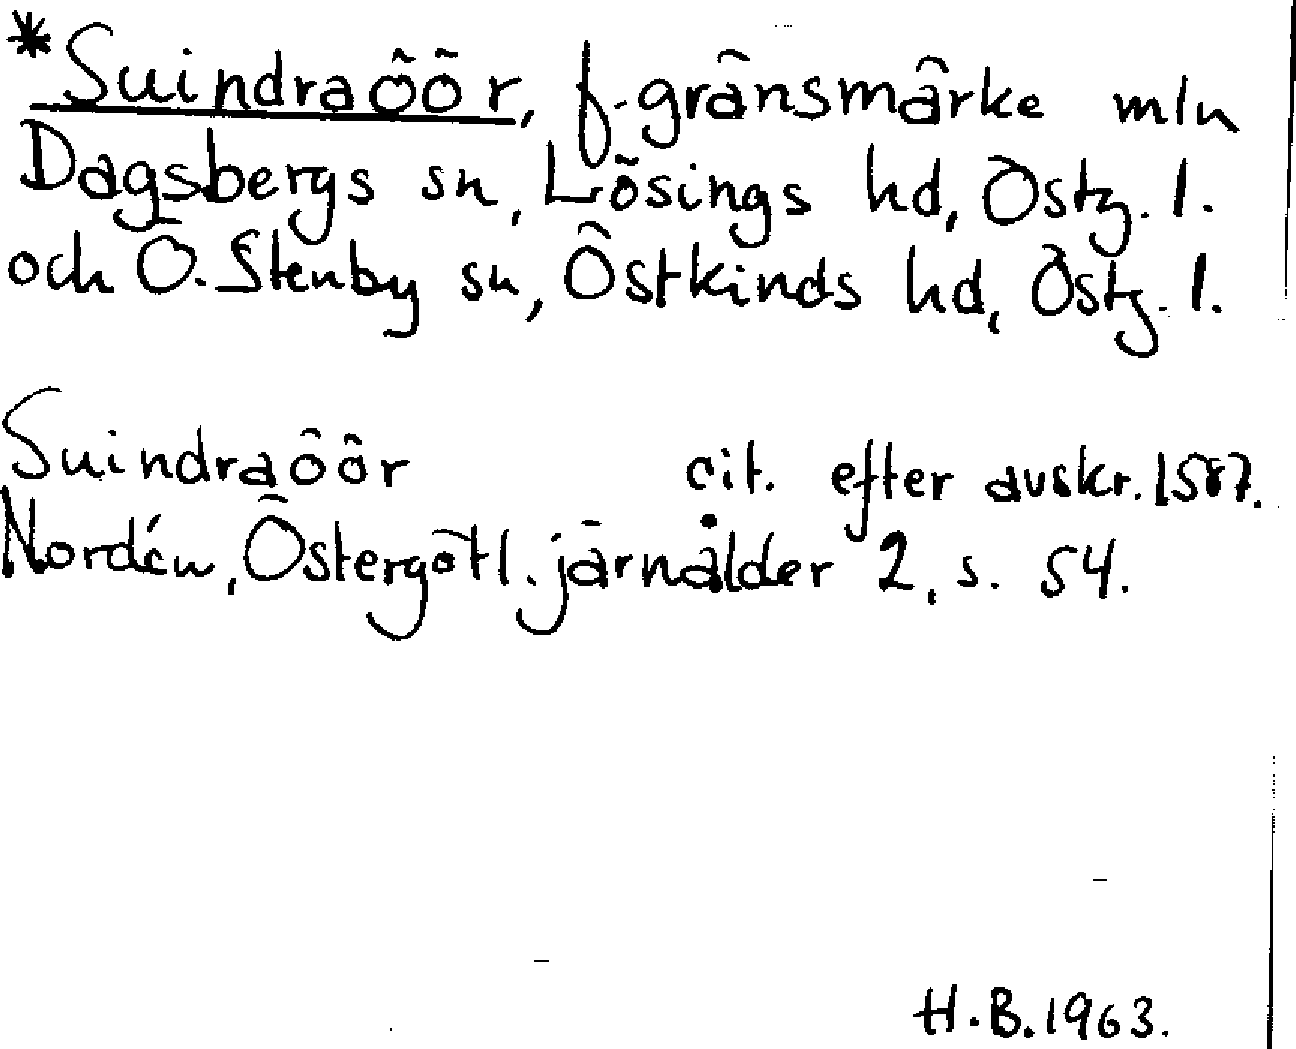 *Suindraöör, f. gränsmärke mln
Dagsbergs sn, Lösings hd, Östg. l.
och Ö. Stenby sn, Östkinds hd, Östg. l.
Suindraöör cit. efter avskr. 1587.
Nordén, Östergötl. järnålder 2, s. 54.
H.B. 1963.